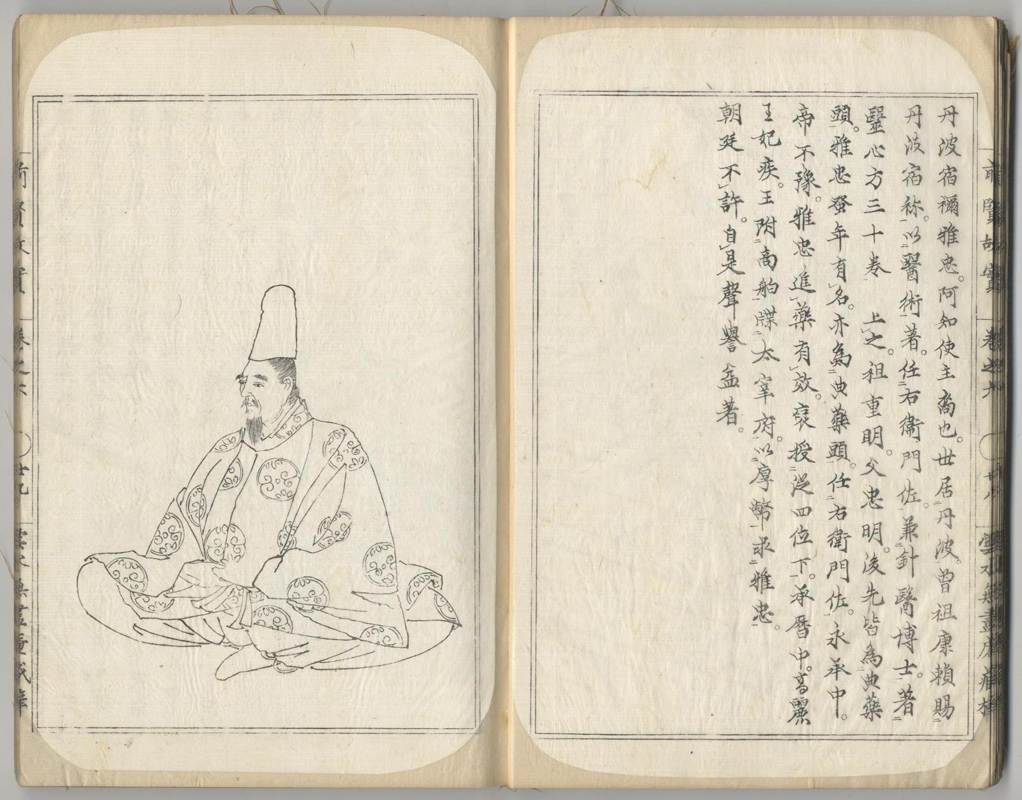 丹波宿禰雅忠。阿知使主裔也。世居丹波。曾祖康賴賜
丹波宿称。以醫術著。任右衞門佐。兼針醫博士。著
毉心方三十卷　上之。祖重明。父忠明。後先皆為典藥
頭。雅忠登年有名。亦為典藥頭。任右衞門佐。永承中。
帝不豫。雅忠進藥有效。襃授從四位下。承曆中。高麗
王妃疾。王附商舶牒太宰府。以厚幣求雅忠。
朝廷不許。自是聲譽益著。
前賢故實　卷之六
前賢故實　卷之六　廿九